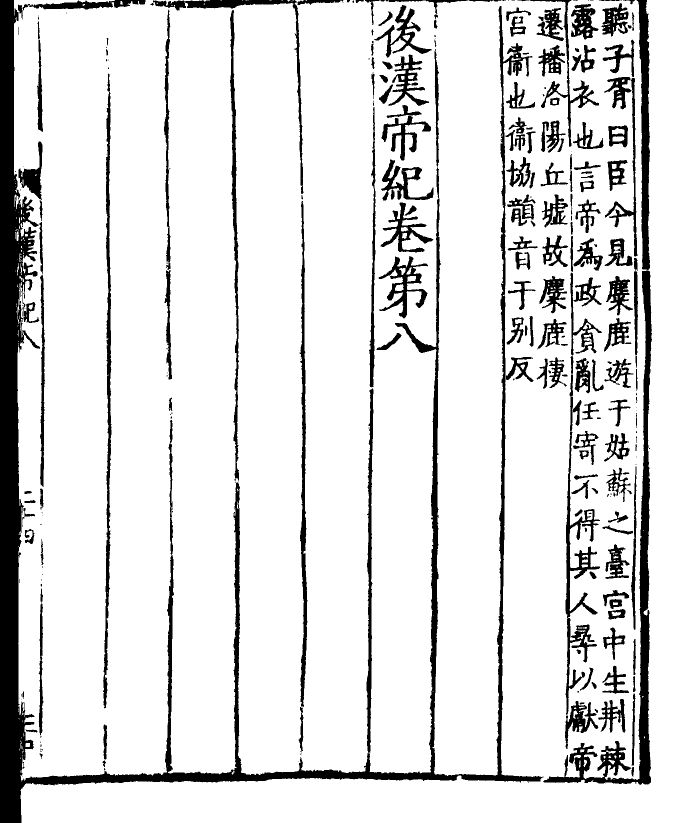 聽子胥曰臣今見麋鹿遊于姑蘇之臺宫中生荆棘
露沾衣也言帝為政貪亂任寄不得其人尋以獻帝
遷播洛陽丘墟故麋鹿棲
宫衞也衞協韻音于别反
後漢帝紀卷第八
後漢帝紀八
二十四